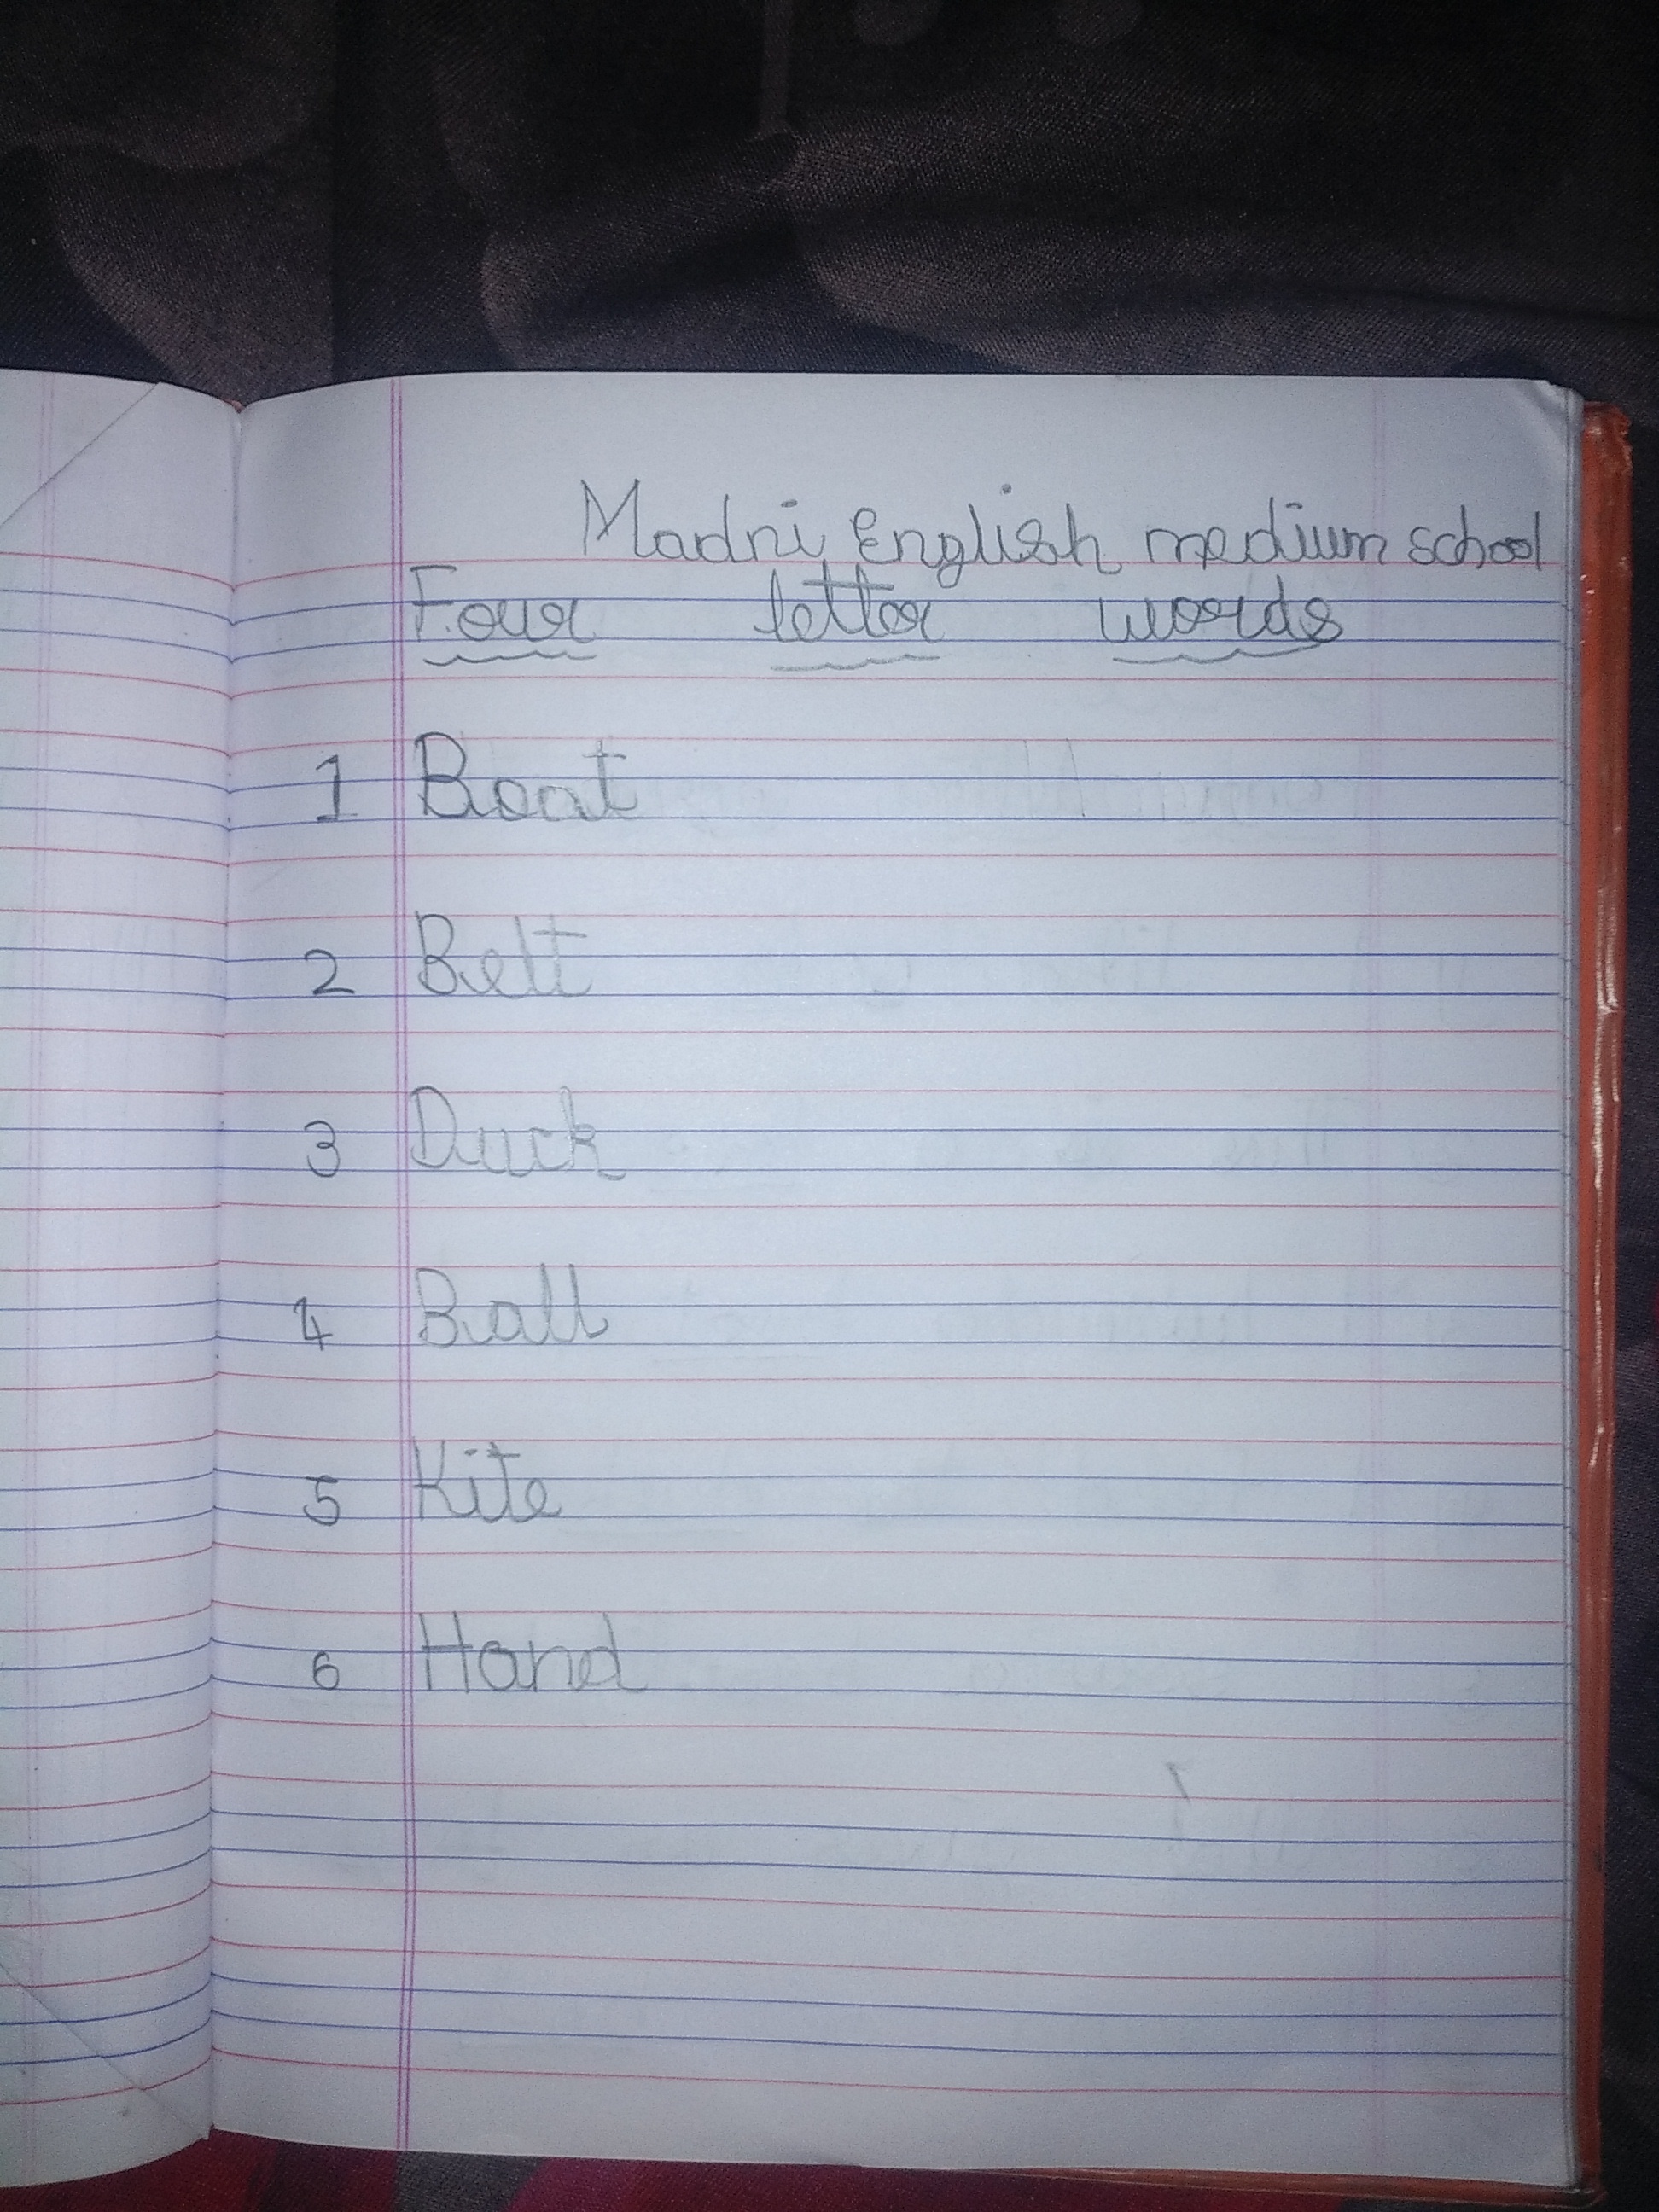 Madni English medium school
Four letter words
1 Boat
2 Belt
3 Duck
4 Ball
5 Kite
6 Hand